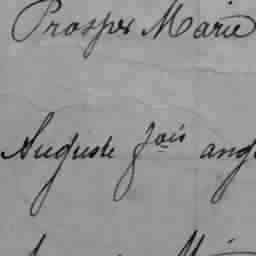 Prosper Marie
Auguste fois ang